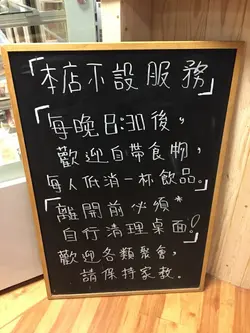 「本店不設服務」
「每晚8:30後，
歡迎自帶食物，
每人低消一杯飲品。」
「離開前必須*
自行清理桌面!」
歡迎各類聚會，
請保持家教.